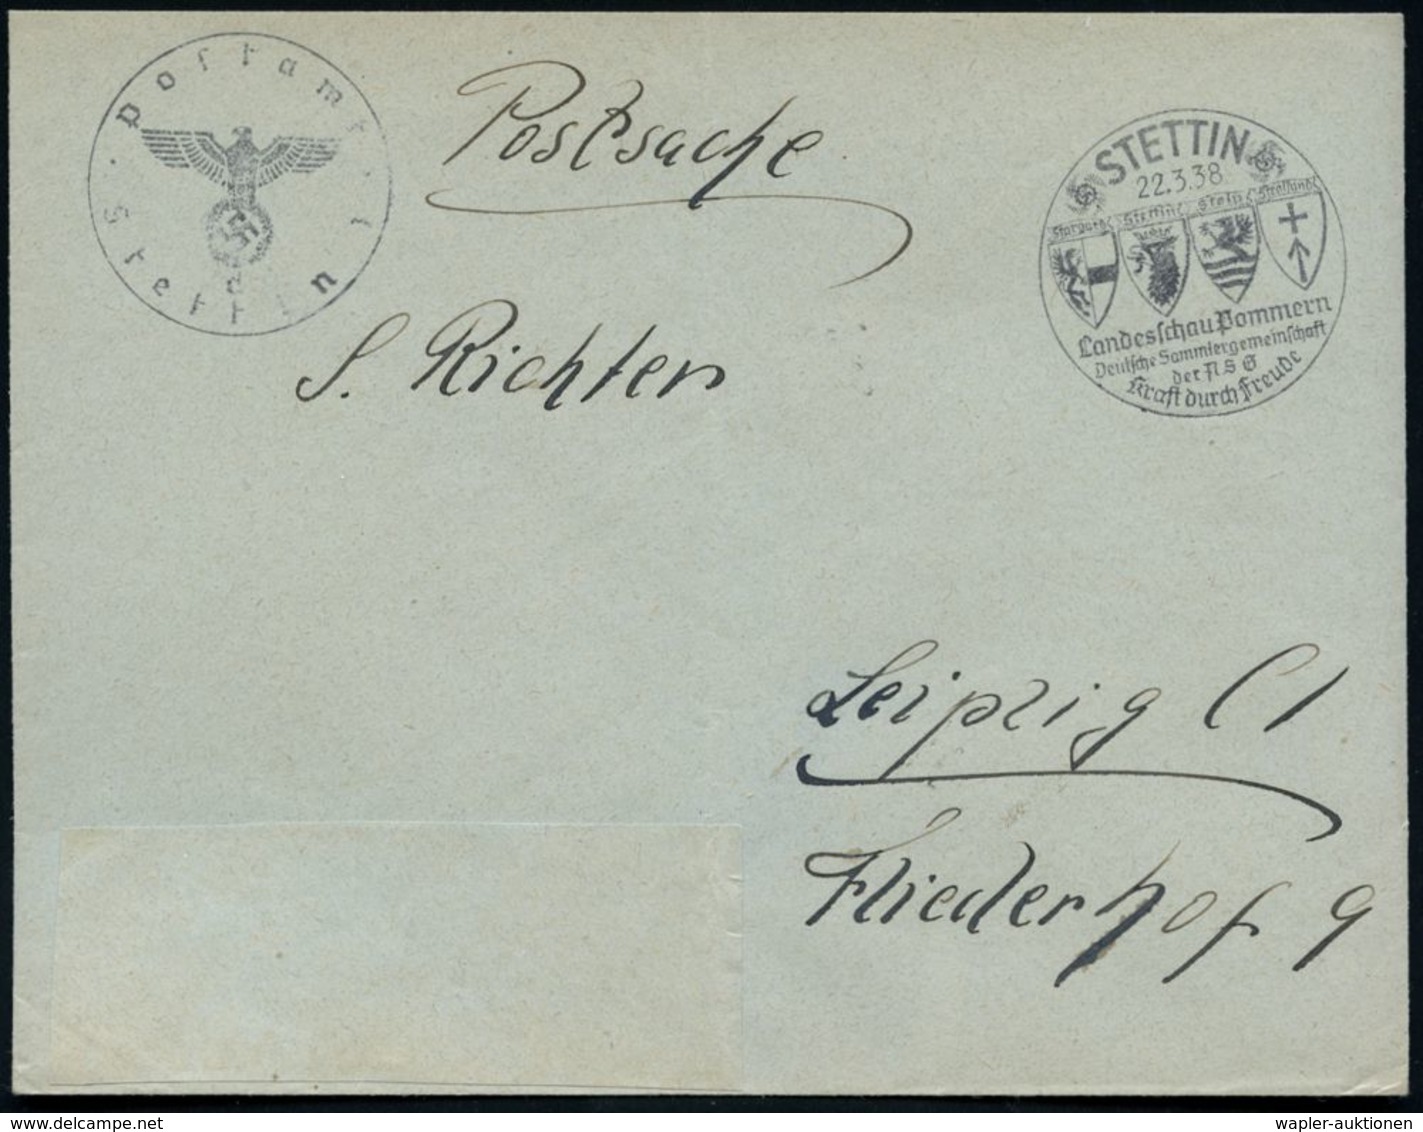 Postamt 1
Stettin
d
Postsache
S. Richter
STETTIN
22.3.38
Stargard Stettin Stolp Stralsund
Landesschau Pommern
Deutsche Sammlergemeinschaft
der N S G
Kraft durch Freude
Leipzig C 1
Fliederhof 9
wapler-auktionen